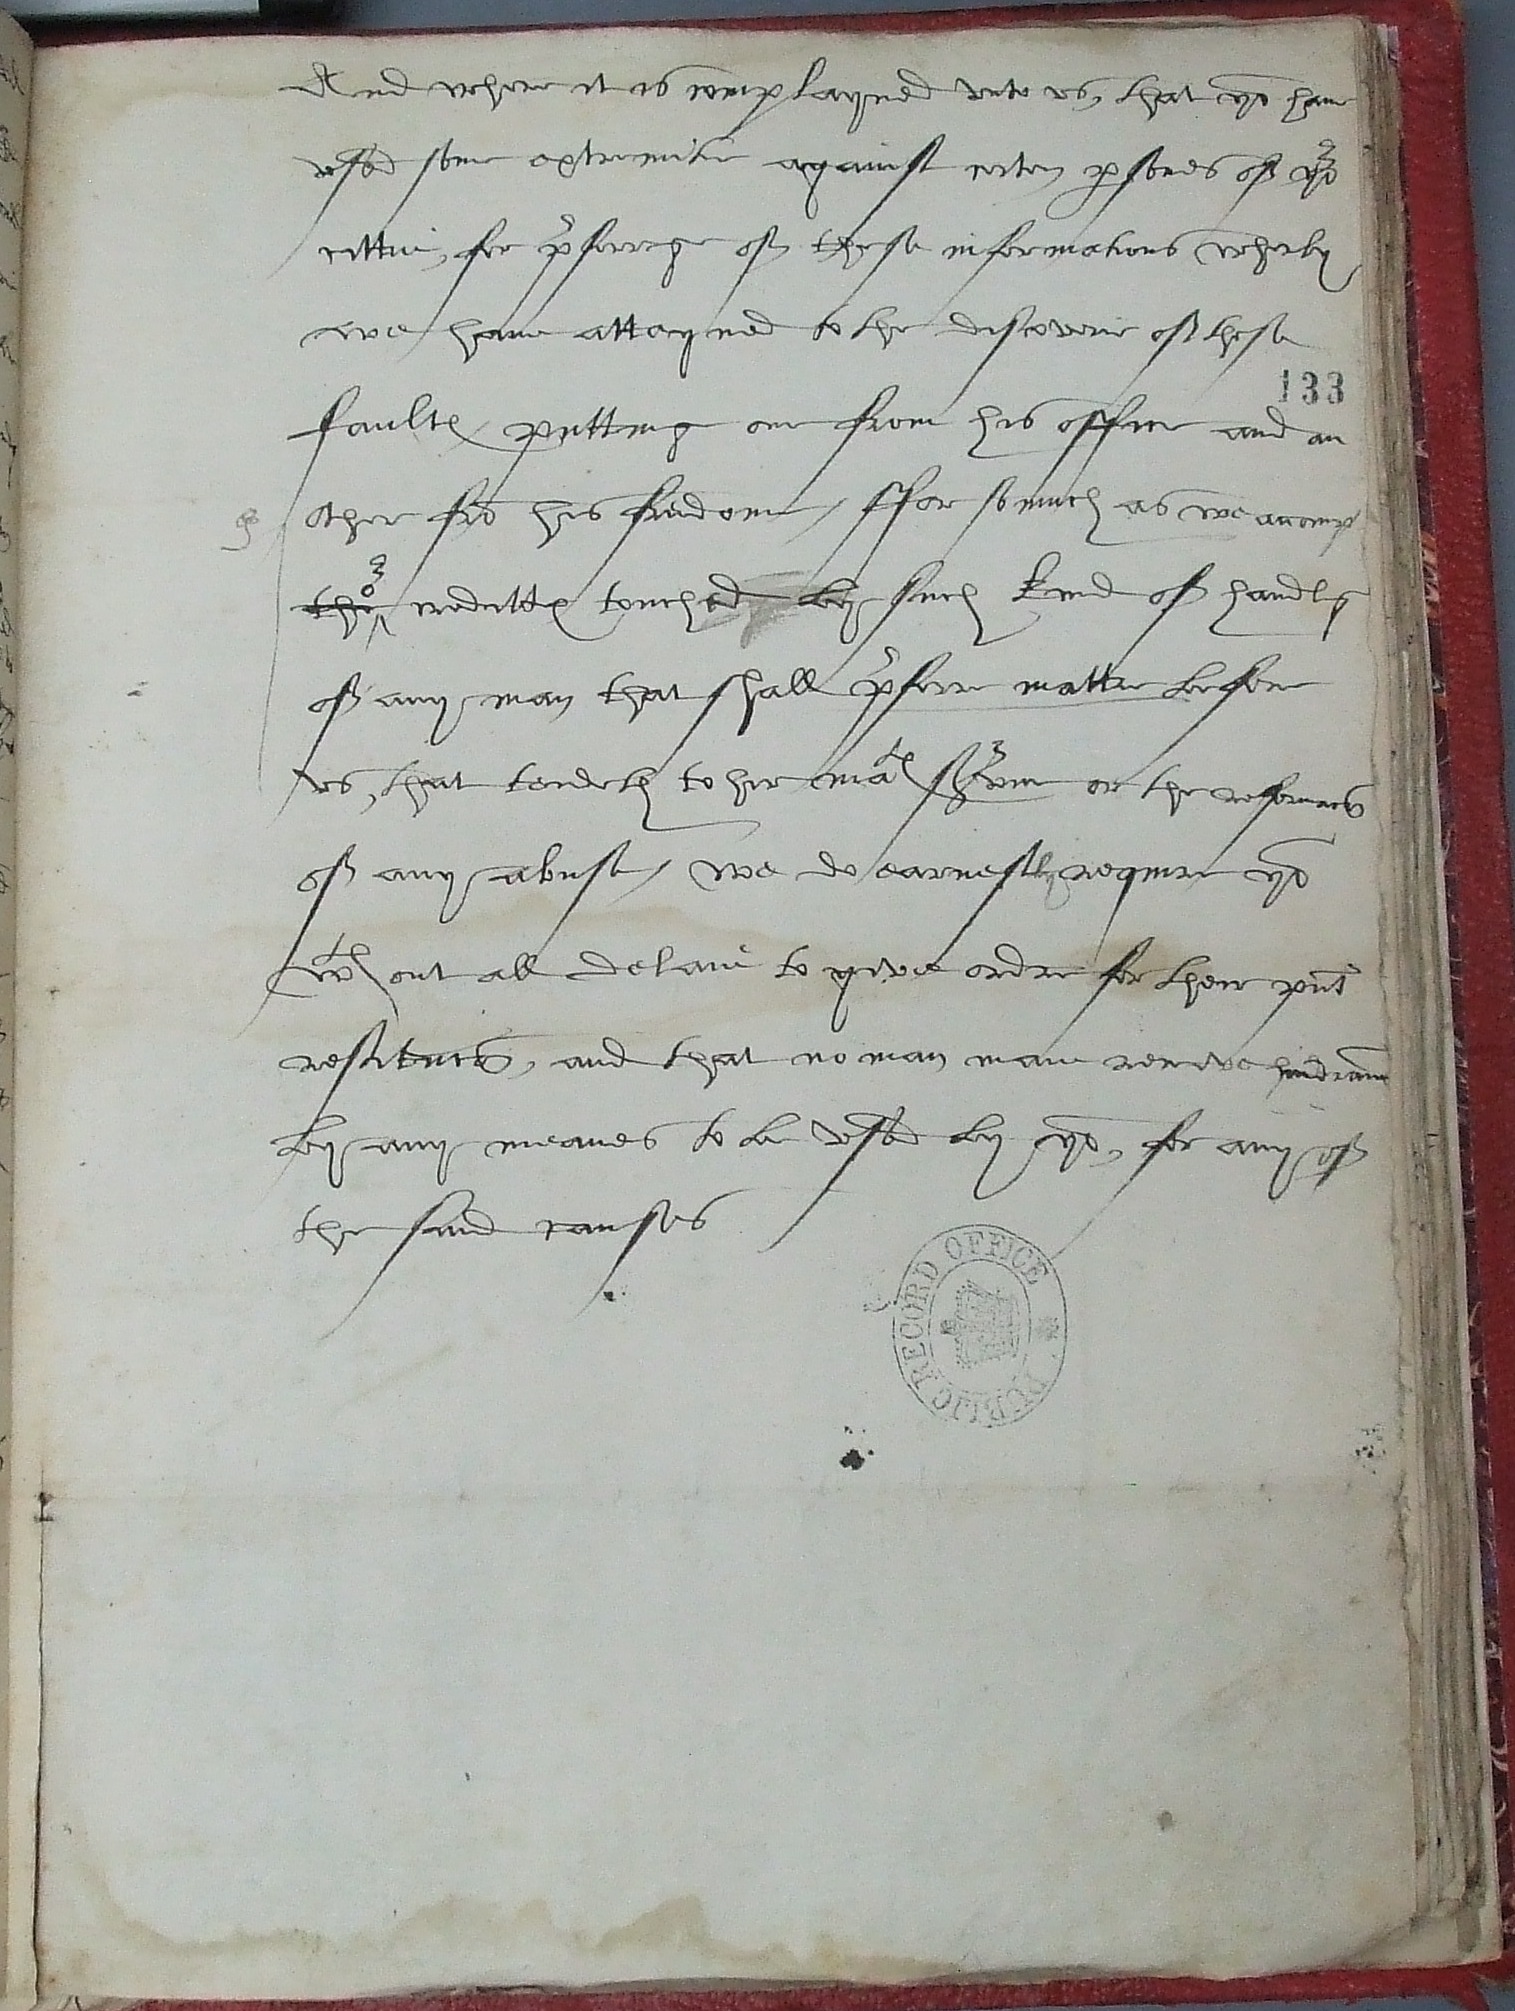 And where it is complayned vnto vs, that yo have
vsed some extremitie against certen psones of yor
cittie, for pferrege of these informations wherby
we have attayned to the discoverie of these
133
faultes putting one from his office and an
other fro his fredome, ffor so much as we accompt
the or credittes touched by such kind of handlg
of any man that shall pferre matter before
vs, that tendeth to her mates service or the reformacon
of any abuse, we do earnestly require yo
wth out all delaie to give order for their pnt
restitucon, and that no man maie receive hindrance
by any meanes to be vsed by yo, for any of
the said causes
PUBLIC RECORD OFFICE